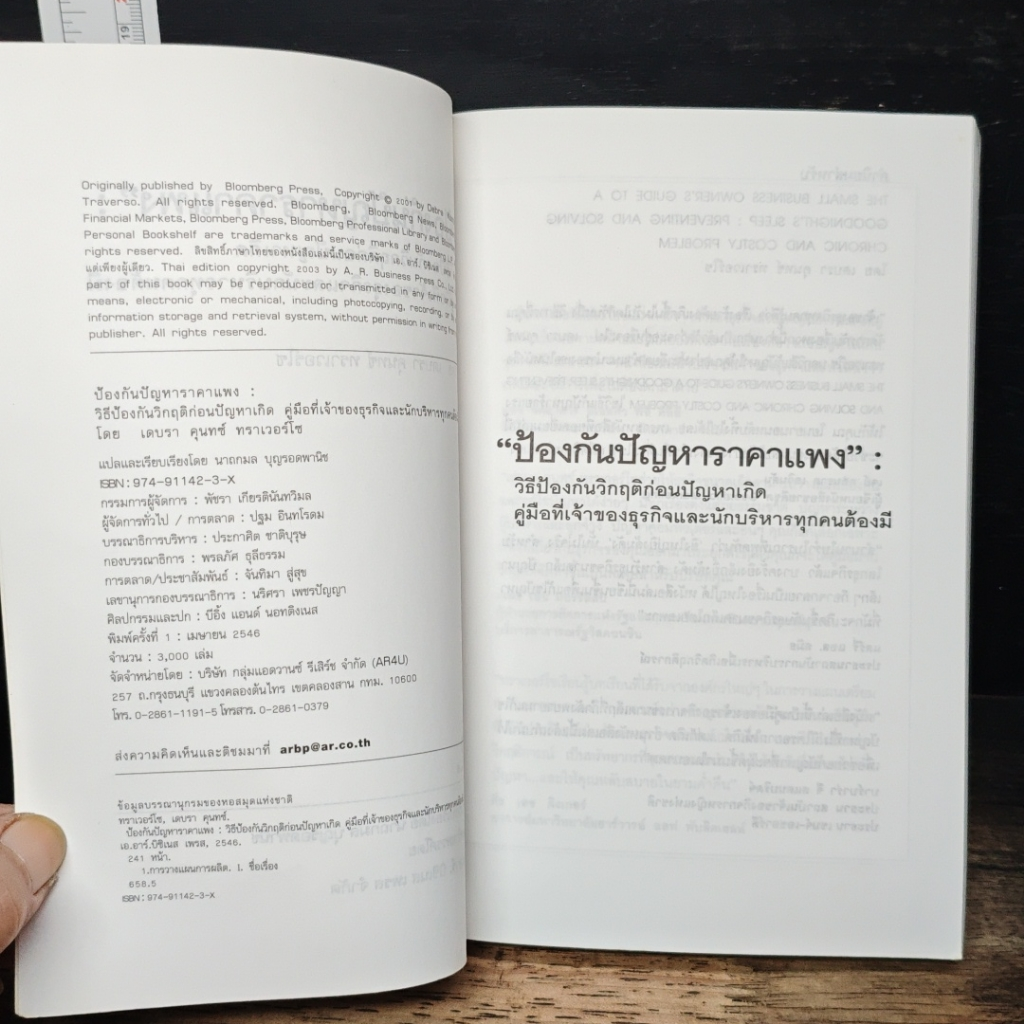 19
Originally published by Bloomberg Press, Copyright © 2001 by Debra
Traverso. All rights reserved. Bloomberg, Bloomberg News,
Financial Markets, Bloomberg Press, Bloomberg Professional Library and
Personal Bookshelf are trademarks and service marks of Bloomberg L.P.
rights reserved. ลิขสิทธิ์ภาษาไทยของหนังสือเล่มนี้เป็นของบริษัท เอ. อาร์. บิซิเนส
แต่เพียงผู้เดียว. Thai edition copyright 2003 by A. R. Business Press Co.,
part of this book may be reproduced or transmitted in any form or
means, electronic or mechanical, including photocopying, recording, or
information storage and retrieval system, without permission in writing from
publisher. All rights reserved.
ป้องกันปัญหาราคาแพง :
วิธีป้องกันวิกฤติก่อนปัญหาเกิด คู่มือที่เจ้าของธุรกิจและนักบริหารทุกคน
โดย เดบรา คุนทซ์ ทราเวอร์โซ
แปลและเรียบเรียงโดย นาถกมล บุญรอดพานิช
ISBN : 974-91142-3-X
กรรมการผู้จัดการ : พัชรา เกียรตินันทวิมล
ผู้จัดการทั่วไป / การตลาด : ปฐม อินทโรดม
บรรณาธิการบริหาร : ประกาศิต ชาติบุรุษ
กองบรรณาธิการ : พรลภัศ ธุลีธรรม
การตลาด/ประชาสัมพันธ์ : จันทิมา สู่สุข
เลขานุการกองบรรณาธิการ : นริศรา เพชรปัญญา
ศิลปกรรมและปก : บีอิ้ง แอนด์ นอทติงเนส
พิมพ์ครั้งที่ 1 : เมษายน 2546
จำนวน : 3,000 เล่ม
จัดจำหน่ายโดย : บริษัท กลุ่มแอดวานซ์ รีเสิร์ช จำกัด (AR4U)
257 ถ.กรุงธนบุรี แขวงคลองต้นไทร เขตคลองสาน กทม. 10600
โทร. 0-2861-1191-5 โทรสาร. 0-2861-0379
ส่งความคิดเห็นและติชมมาที่ arbp@ar.co.th
ข้อมูลบรรณานุกรมของหอสมุดแห่งชาติ
ทราเวอร์โซ, เดบรา คุนทซ์.
ป้องกันปัญหาราคาแพง : วิธีป้องกันวิกฤติก่อนปัญหาเกิด คู่มือที่เจ้าของธุรกิจและนักบริหารทุกคน
เอ.อาร์.บิซิเนส เพรส, 2546.
241 หน้า.
1.การวางแผนการผลิต. I. ชื่อเรื่อง
658.5
ISBN : 974-91142-3-X
“ป้องกันปัญหาราคาแพง” :
วิธีป้องกันวิกฤติก่อนปัญหาเกิด
คู่มือที่เจ้าของธุรกิจและนักบริหารทุกคนต้องมี